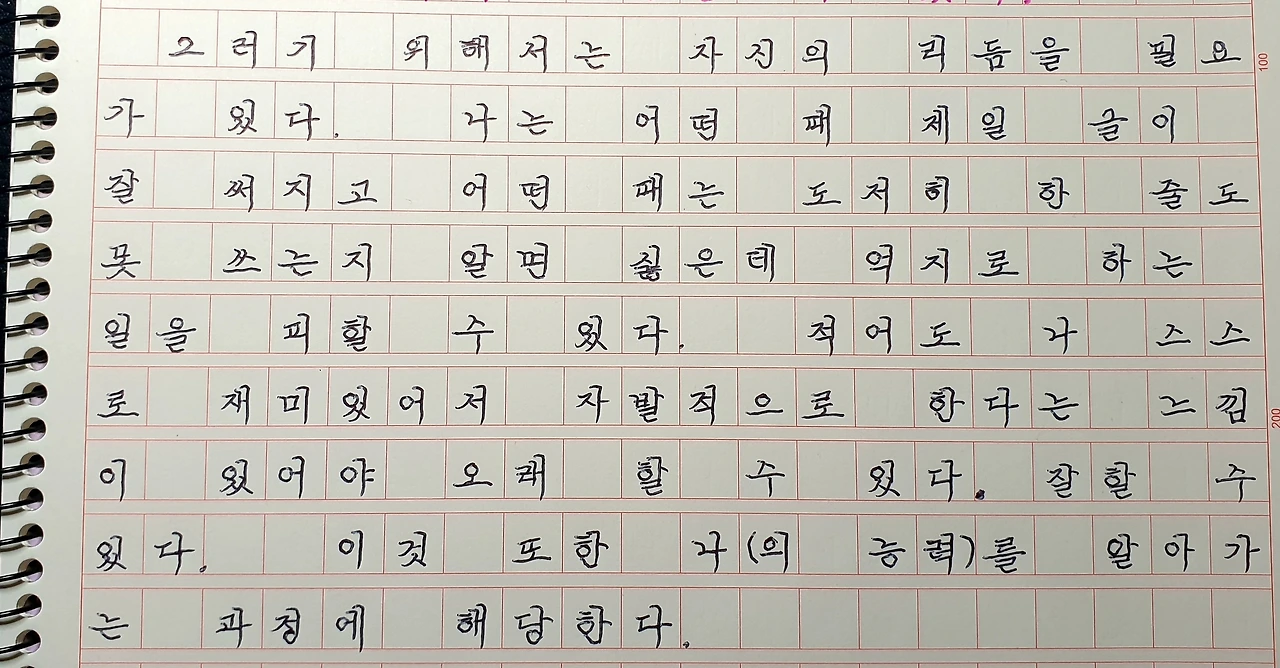 그러기 위해서는 자신의 리듬을 필요
가 있다. 나는 어떤 때 제일 글이
잘 써지고 어떤 때는 도저히 한 줄도
못 쓰는지 알면 싫은데 억지로 하는
일을 피할 수 있다. 적어도 나 스스
로 재미있어서 자발적으로 한다는 느낌
이 있어야 오래 할 수 있다. 잘할 수
있다. 이것 또한 나(의 능력)를 알아가
는 과정에 해당한다.